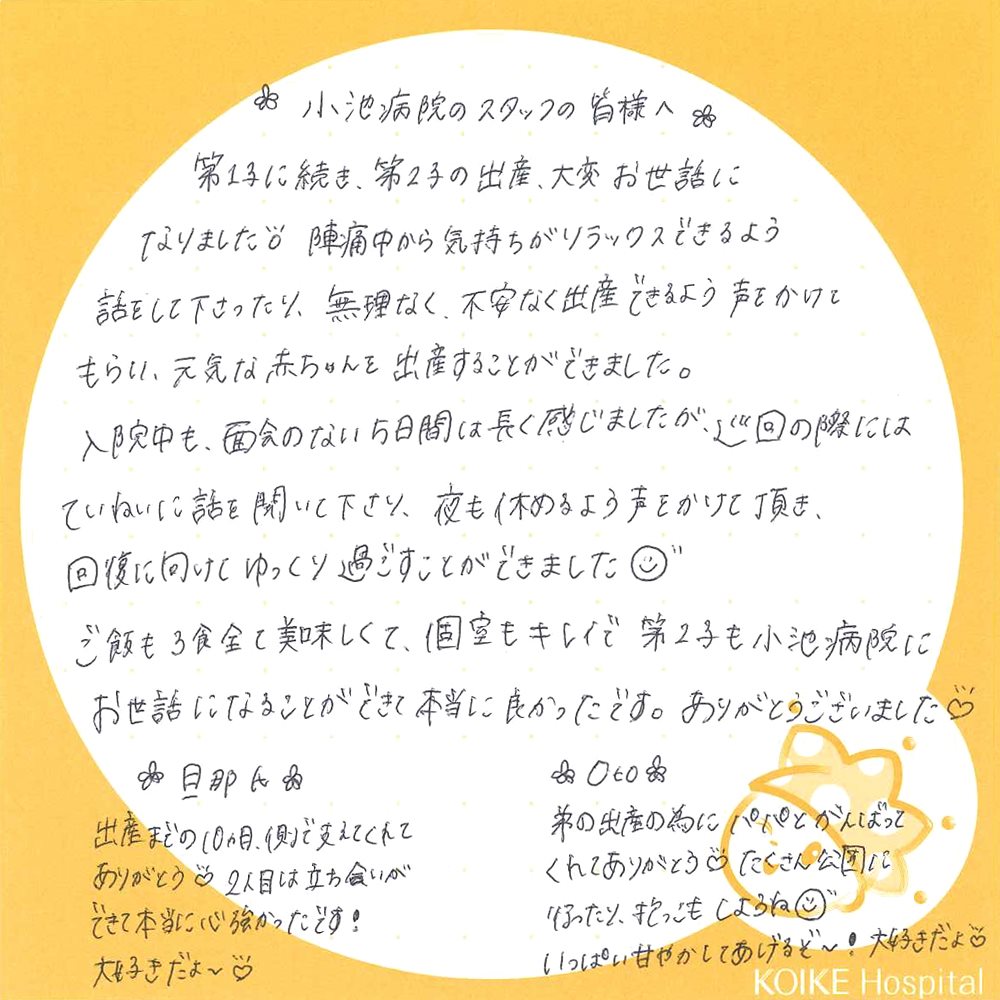 小池病院のスタッフの皆様へ
第1子に続き、第2子の出産、大変お世話に
なりました♡ 陣痛中から気持ちがリラックスできるよう
話をして下さったり、無理なく、不安なく出産できるよう声をかけて
もらい、元気な赤ちゃんを出産することができました。
入院中も、面会のない5日間は長く感じましたが、巡回の際には
ていねいに話を聞いて下さり、夜も休めるよう声をかけて頂き、
回復に向けてゆっくり過ごすことができました☺
ご飯も3食全て美味しくて、個室もキレイで第2子も小池病院に
お世話になることができて本当に良かったです。ありがとうございました♡
旦那氏
出産までの10ヵ月、側で支えてくれて
ありがとう♡ 2人目は立ち会いが
できて本当に心強かったです!
大好きだよ〜♡
Oto
弟の出産の為にパパとがんばって
くれてありがとう♡ たくさん公園に
行ったり、抱っこもしようね☺
いっぱい甘やかしてあげるぞ〜! 大好きだよ♡
KOIKE Hospital